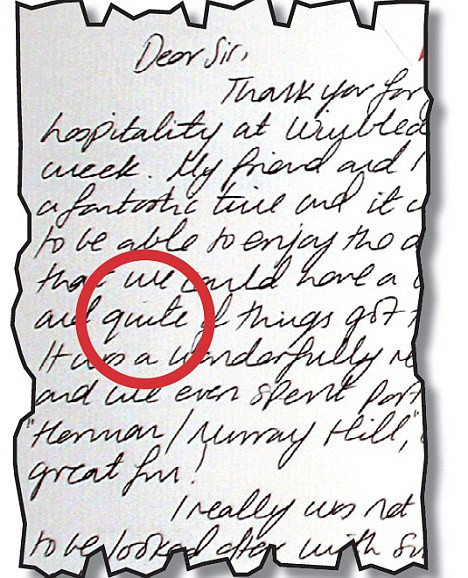 Dear Sir,
Thank you for
hospitality at Wimbled
week. My friend and I
a fantastic time and it w
to be able to enjoy the d
that we could have a
and quite if things got
It was a wonderfully re
and we even spent part
"Henman / Murray Hill,"
great fun!
I really was not
to be looked after with su